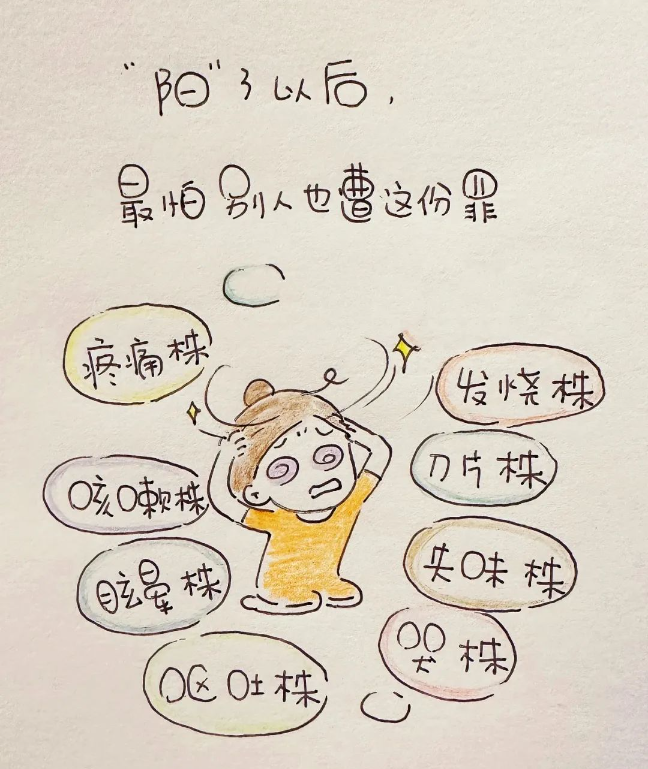 “阳”了以后，
最怕别人也遭这份罪
疼痛株
发烧株
咳嗽株
刀片株
眩晕株
失味株
呕吐株
哭株